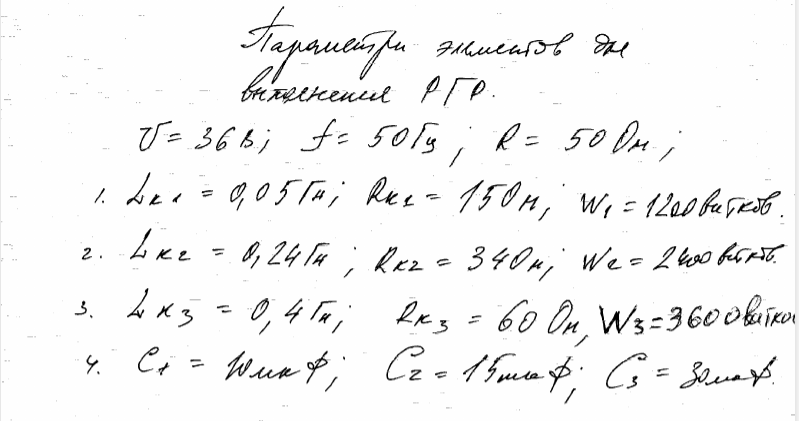 Параметри элементов для
выполнения РГР.
U = 36 В; f = 50 Гц; R = 50 Ом;
1. Lк1 = 0,05 Гн; Rк1 = 15 Ом; W1 = 1200 витков.
2. Lк2 = 0,24 Гн; Rк2 = 34 Ом; W2 = 2400 витков.
3. Lк3 = 0,4 Гн; Rк3 = 60 Ом, W3 = 3600 витков
4. C1 = 10 мкФ; C2 = 15 мкФ; C3 = 30 мкФ.